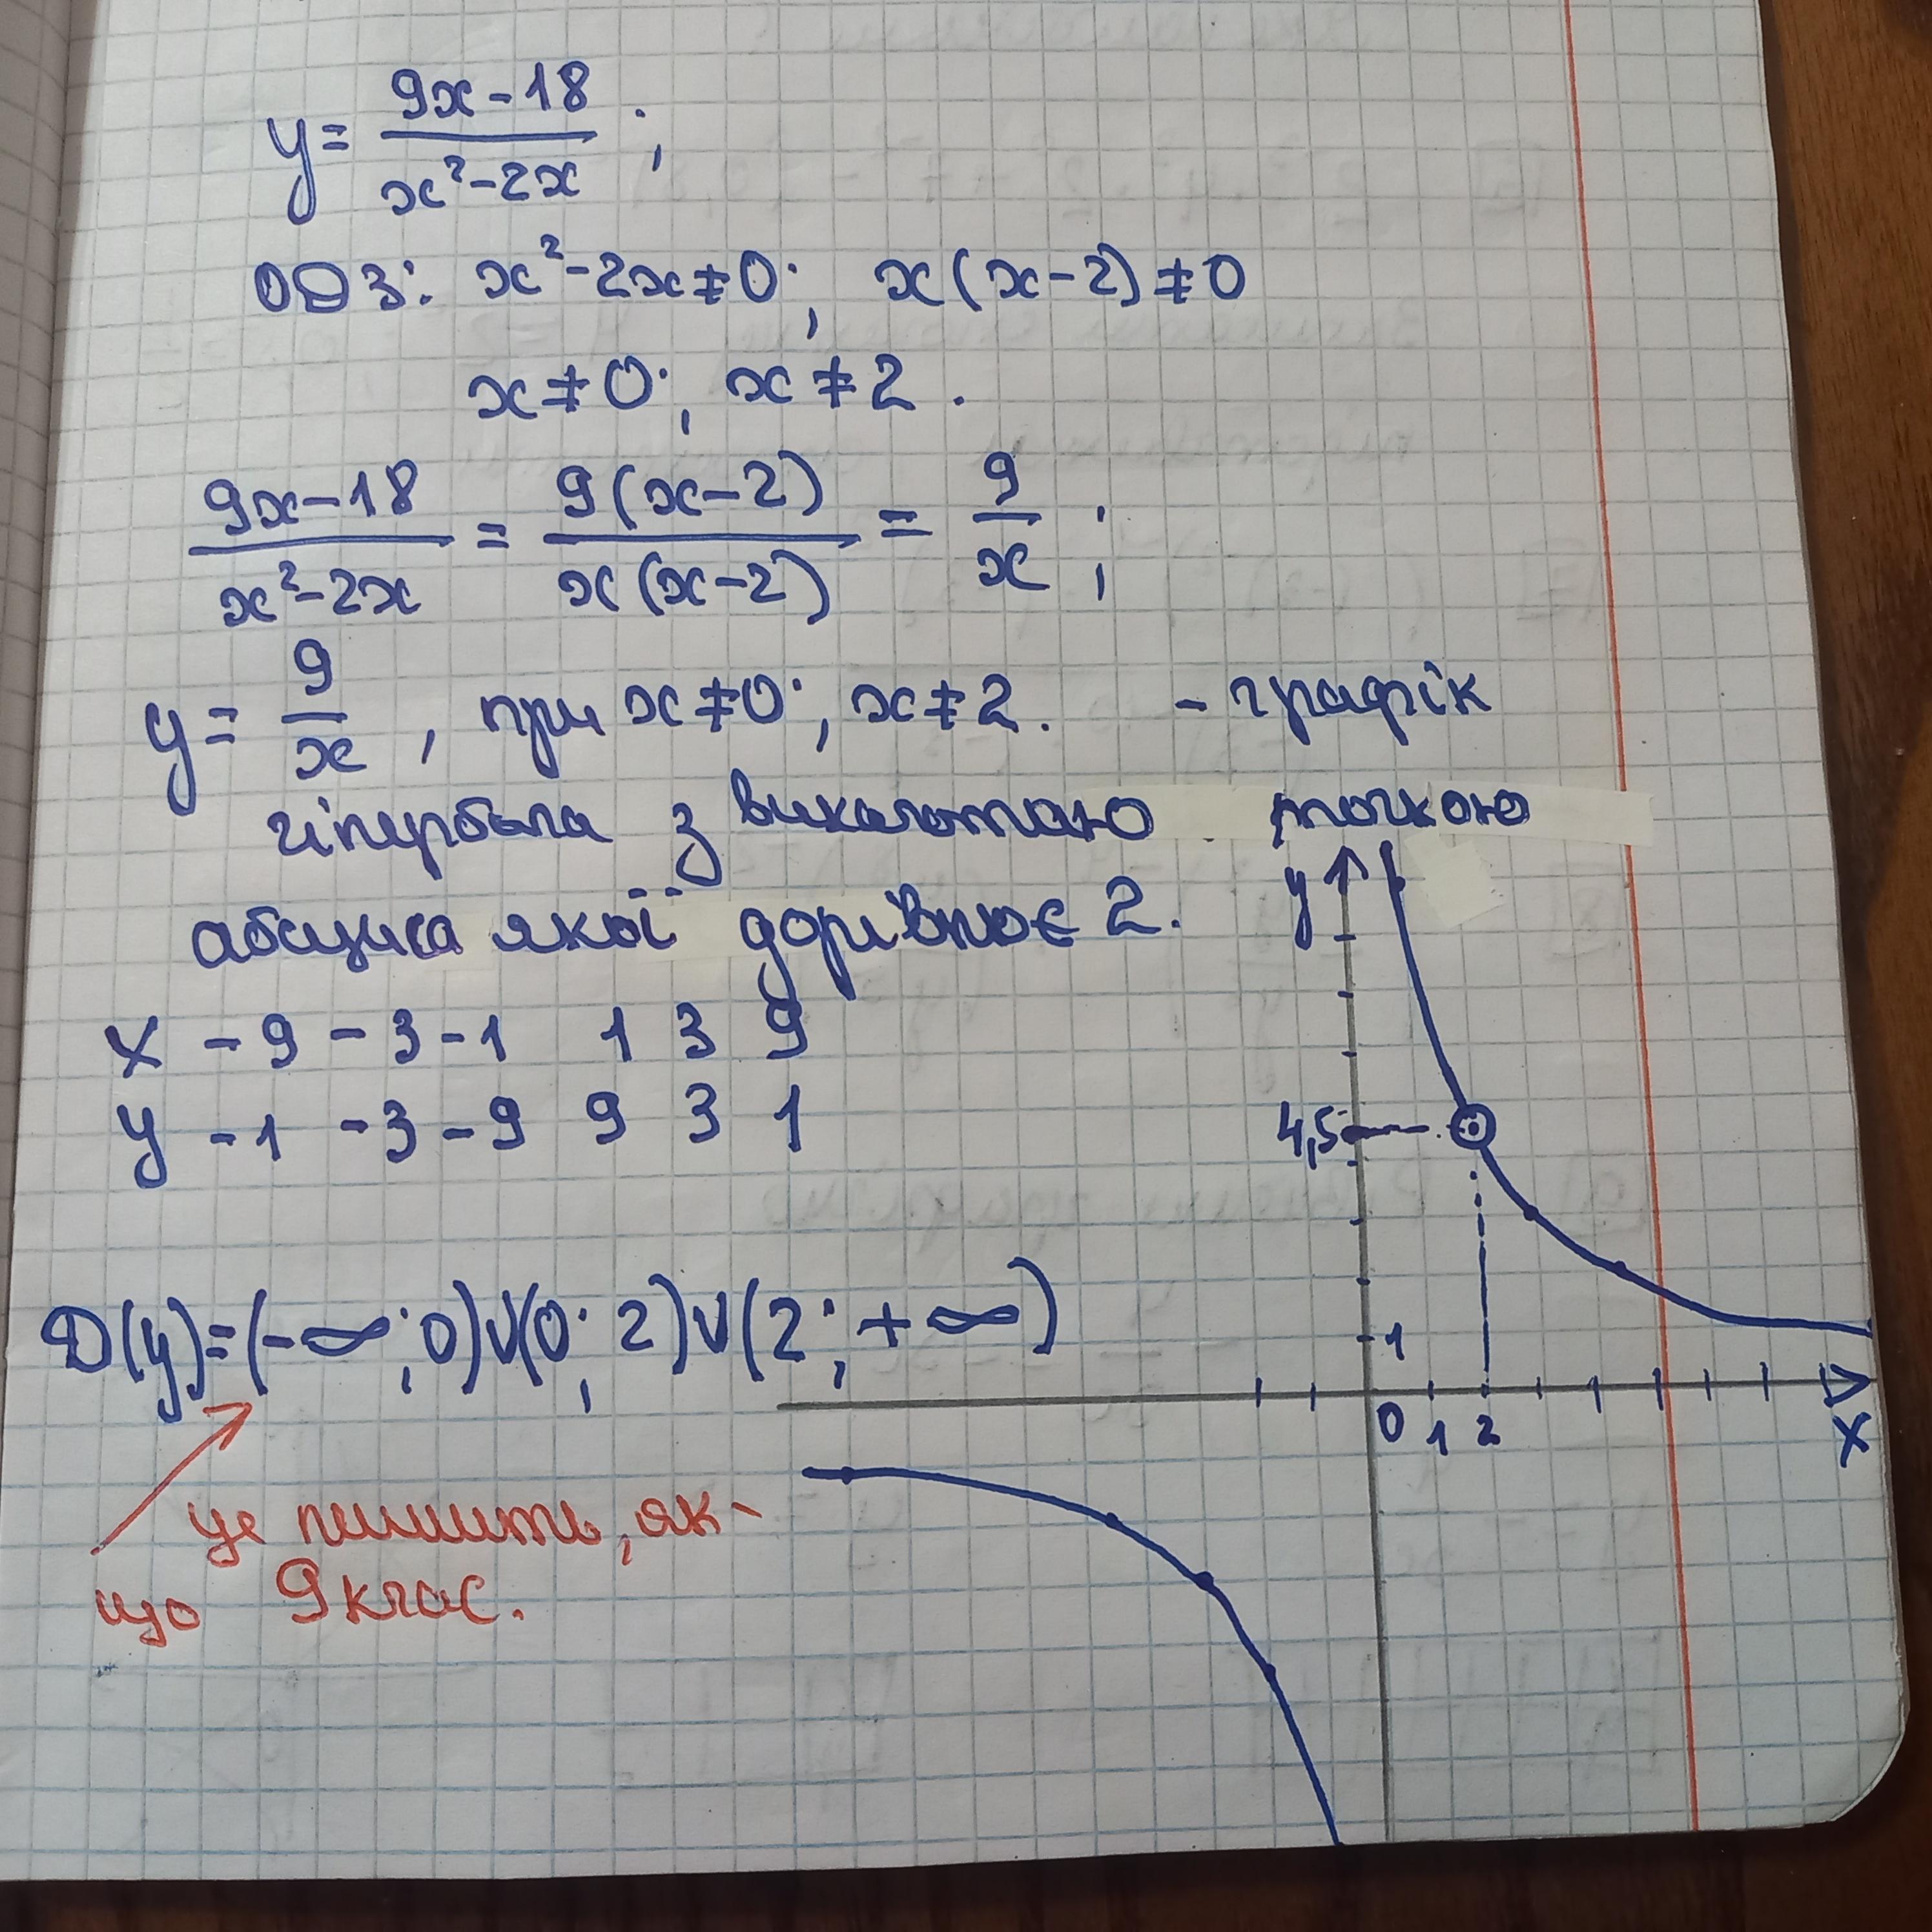 y = (9x-18)/(x²-2x) ;
ОДЗ: x²-2x≠0; x(x-2)≠0
x≠0; x≠2.
(9x-18)/(x²-2x) = 9(x-2)/(x(x-2)) = 9/x ;
y = 9/x , при x≠0; x≠2. - графік
гіпербола з виколотою точкою
абсциса якої дорівнює 2.
x -9 -3 -1 1 3 9
y -1 -3 -9 9 3 1
D(y)=(-∞;0)∪(0;2)∪(2;+∞)
це пишить, як-
що 9 клас.
y
4,5
1
0 1 2
x